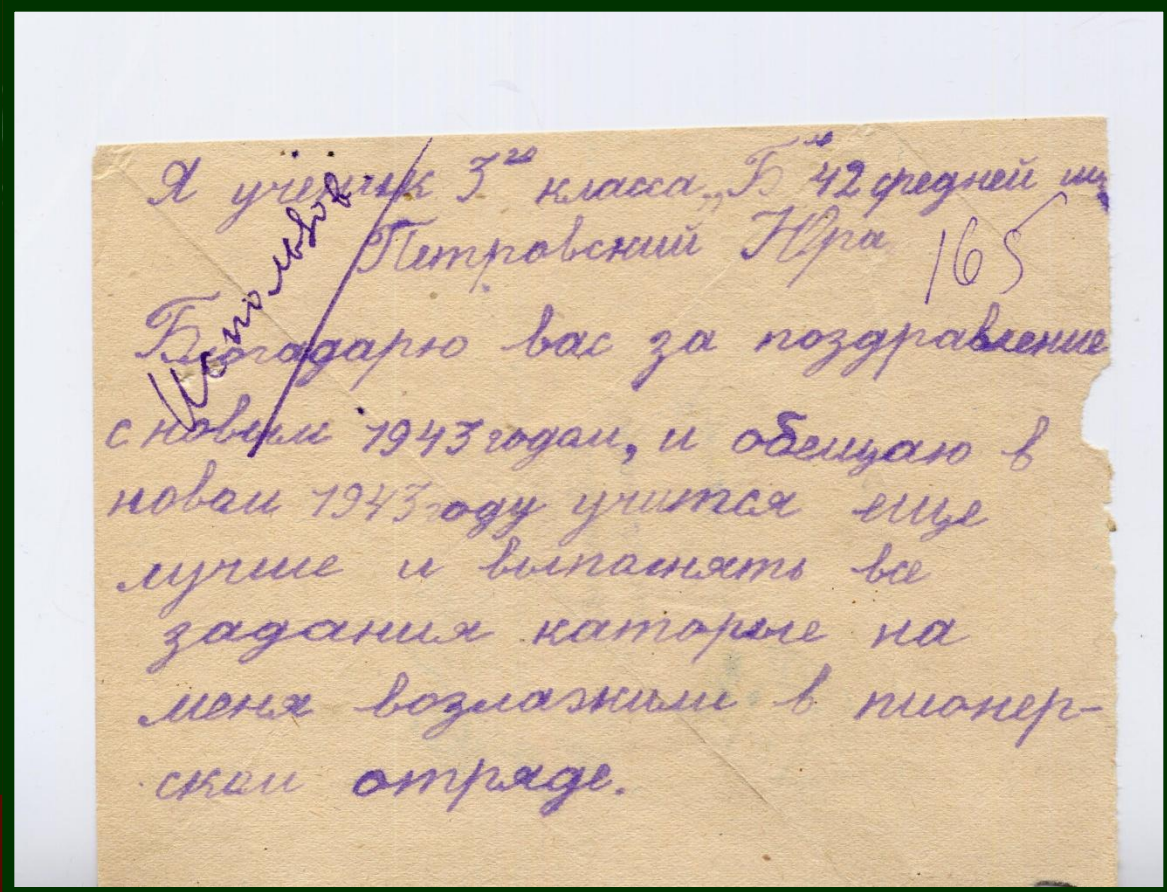 Я ученик 3го класса „Б" 42 средней шк
Петровский Юра
165
Использов
Благадарю вас за поздравление
с новым 1943 годом, и обещаю в
новом 1943 году учится еще
лучше и выпалнять все
задания каторые на
меня возлажили в пионер-
ском отряде.